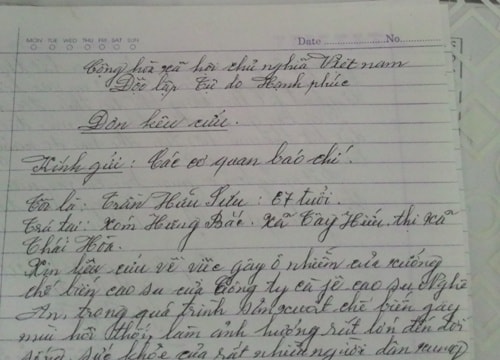 MON TUE WED THU FRI SAT SUN
Date No.
Cộng hòa xã hội chủ nghĩa Việt nam
Độc lập Tự do Hạnh phúc
Đơn kêu cứu.
Kính gửi: Các cơ quan báo chí.
Tôi là: Trần Hữu Sửu: 67 tuổi.
Trú tại: Xóm Hưng Bắc, Xã Tây Hiếu, thị xã
Thái Hòa.
Xin kêu cứu về việc gây ô nhiễm của xưởng
chế biến cao su của Công ty cà fê cao su Nghệ
An, trong quá trình sản xuất chế biến gây
mùi hôi thối, làm ảnh hưởng rất lớn đến đời
sống, sức khỏe của rất nhiều người dân